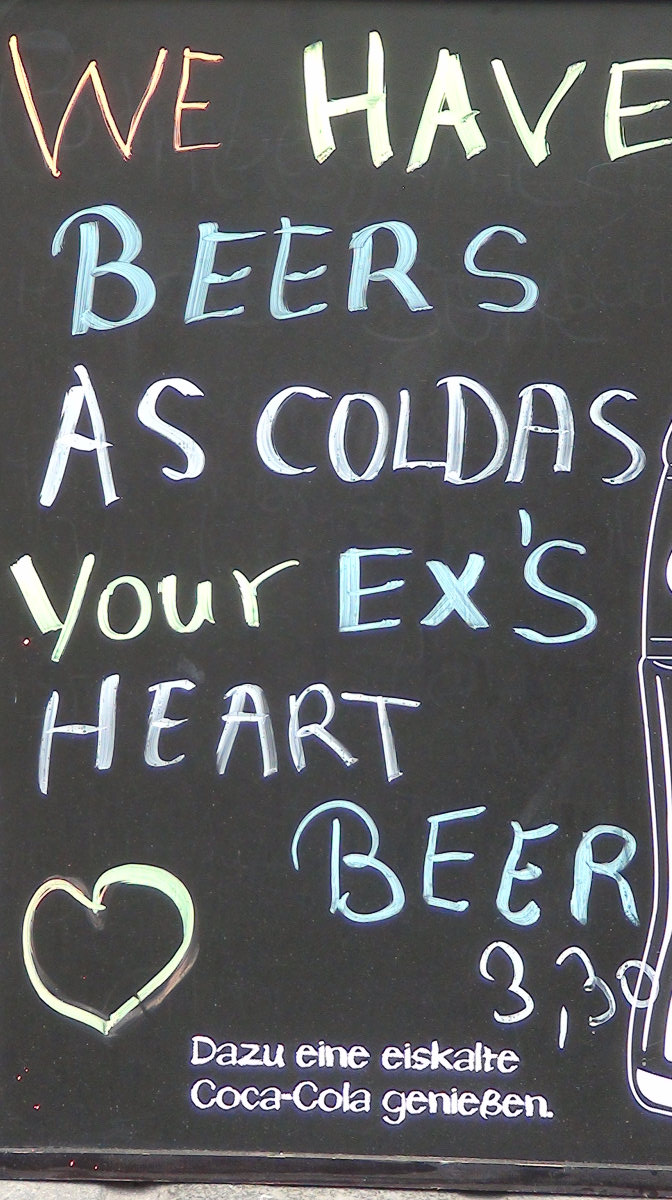 WE HAVE
BEERS
AS COLD AS
your Ex'S
HEART
BEER
3,30
Dazu eine eiskalte
Coca-Cola genießen.